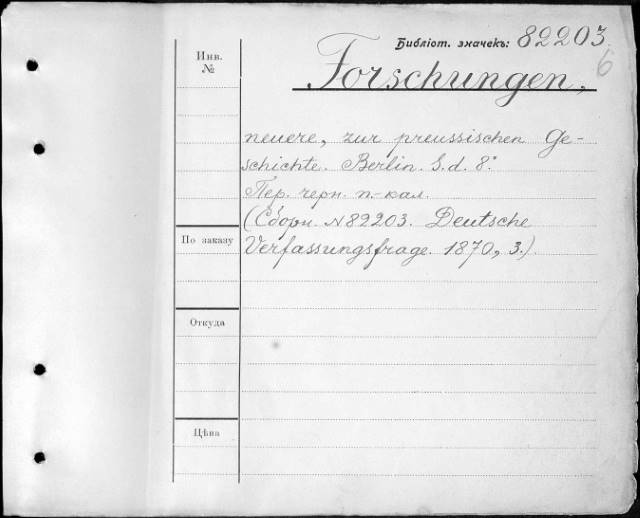 Библіот. значекъ: 82203
6
Инв.
№
Forschungen,
neuere, zur preussischen Ge-
schichte. Berlin. S. d. 8°
Пер. черн. п.-кал.
(Сборн. №82203. Deutsche
Verfassungsfrage. 1870, 3.)
По заказу
Откуда
Цѣна